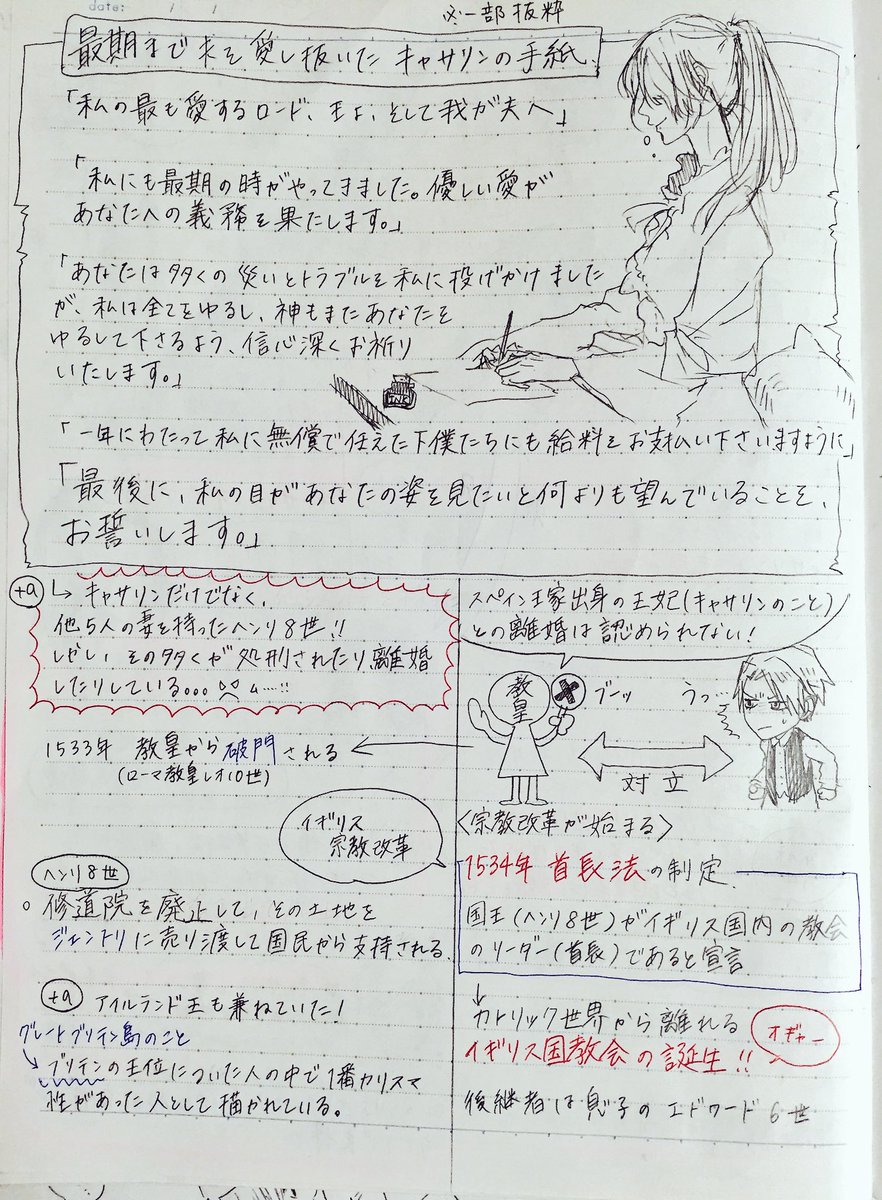 date: / /
※一部抜粋
最期まで夫を愛し抜いた キャサリンの手紙
「私の最も愛するロード、王よ、そして我が夫へ」
「私にも最期の時がやってきました。優しい愛が
あなたへの義務を果たします。」
「あなたは多くの災いとトラブルを私に投げかけました
が、私は全てをゆるし、神もまたあなたを
ゆるして下さるよう、信心深くお祈り
いたします。」
INK
「一年にわたって私に無償で仕えた下僕たちにも給料をお支払い下さいますように」
「最後に、私の目があなたの姿を見たいと何よりも望んでいることを、
お誓いします。」
+α
↳ キャサリンだけでなく、
他5人の妻を持ったヘンリ8世!!
しかし、その多くが処刑されたり、離婚
したりしている。。。
1533年 教皇から破門される
(ローマ教皇レオ10世)
イギリス
宗教改革
ヘンリ8世
○修道院を廃止して、その土地を
ジェントリに売り渡して国民から支持される。
+α アイルランド王も兼ねていた!
グレートブリテン島のこと
↳ブリテンの王位についた人の中で1番カリスマ
性があった人として描かれている。
スペイン王家出身の王妃(キャサリンのこと)
との離婚は認められない!
教皇
ブーッ
うっ…
対立
<宗教改革が始まる>
1534年 首長法の制定
国王(ヘンリ8世)がイギリス国内の教会
のリーダー(首長)であると宣言
↓
カトリック世界から離れる
イギリス国教会の誕生!!
オギャー
後継者は息子のエドワード6世